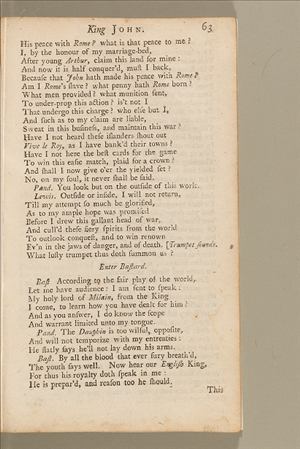 King JOHN. 63
His peace with Rome? what is that peace to me?
I, by the honour of my marriage-bed,
After young Arthur, claim this land for mine:
And now it is half conquer'd, must I back,
Because that John hath made his peace with Rome?
Am I Rome's slave? what penny hath Rome born?
What men provided? what munition sent,
To under-prop this action? is't not I
That undergo this charge? who else but I,
And such as to my claim are liable,
Sweat in this business, and maintain this war?
Have I not heard these islanders shout out
Vive le Roy, as I have bank'd their towns?
Have I not here the best cards for the game
To win this easie match, plaid for a crown?
And shall I now give o'er the yielded set?
No, on my soul, it never shall be said.
Pand. You look but on the outside of this work.
Lewis. Outside or inside, I will not return,
'Till my attempt so much be glorified,
As to my ample hope was promised
Before I drew this gallant head of war,
And cull'd these fiery spirits from the world
To outlook conquest, and to win renown
Ev'n in the jaws of danger, and of death. [Trumpet sounds.
What lusty trumpet thus doth summon us?
Enter Bastard.
Bast. According to the fair play of the world,
Let me have audience: I am sent to speak:
My holy lord of Milain, from the King
I come, to learn how you have dealt for him?
And as you answer, I do know the scope
And warrant limited unto my tongue.
Pand. The Dauphin is too wilful, opposite,
And will not temporize with my entreaties:
He flatly says he'll not lay down his arms.
Bast. By all the blood that ever fury breath'd,
The youth says well. Now hear our English King,
For thus his royalty doth speak in me:
He is prepar'd, and reason too he should,
This